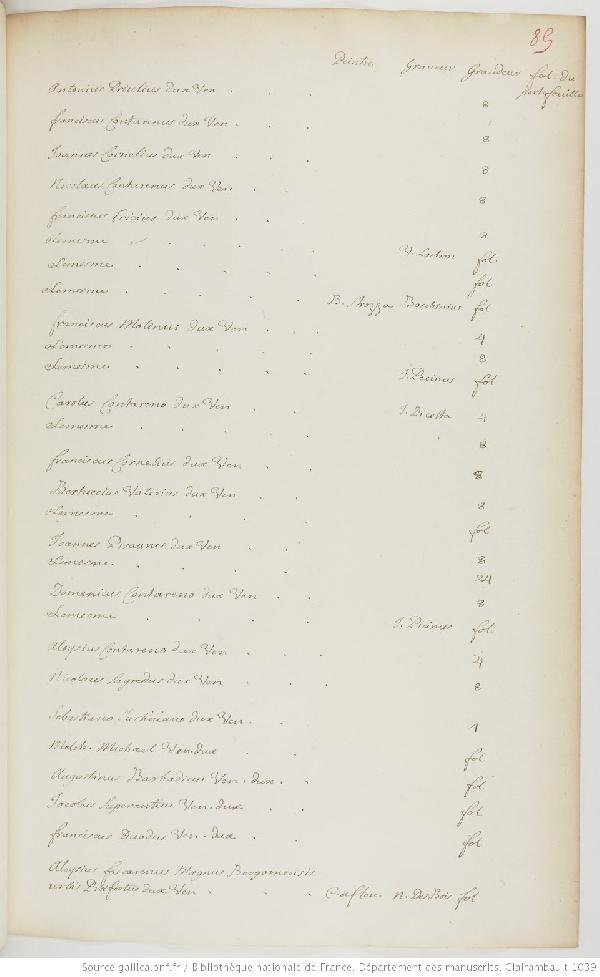 85
Peintre Graveur Grandeur fol. du
portefeuille
Antonius Priolius dux Ven 8
franciscus Contarenus dux Ven 8
Joannes Cornelius dux Ven 8
Nicolaus Contarenus dux Ven 8
franciscus Ericius dux Ven 2
Lemesme fol.
Lemesme fol
Lemesme B. Bocchinius fol
franciscus Molinus dux Ven 4
Lemesme 8
Lemesme J. Picinus fol
Carolus Contareno dux Ven J. Picota 4
Lemesme 8
franciscus Cornelius dux Ven 8
Bertuccius Valerius dux Ven 8
Lemesme fol
Joannes Pisaurus dux Ven 8
Lemesme 24
Domenicus Contareno dux Ven 8
Lemesme J. Picinus fol
Aloysius Contareno dux Ven 4
Nicolaus Sagredus dux Ven 8
Sebastiano Justiniano dux Ven 4
Melch. Michael Ven. dux fol
Augustinus Barbadicus Ven. dux. fol
Jacobus Superantius Ven. dux fol
franciscus Duodus Ven. dux fol
Aloysius foscarenus Magnus Bergomensis
urbis Præfectus dux Ven N. Des Bois fol
Source gallica.bnf.fr / Bibliothèque nationale de France. Département des manuscrits. Clairambault 1039